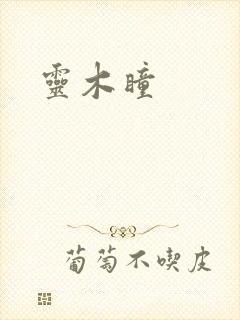 靈木瞳
葡萄不喫皮